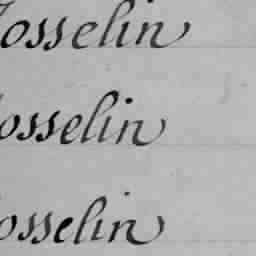 Josselin
osselin
osselin